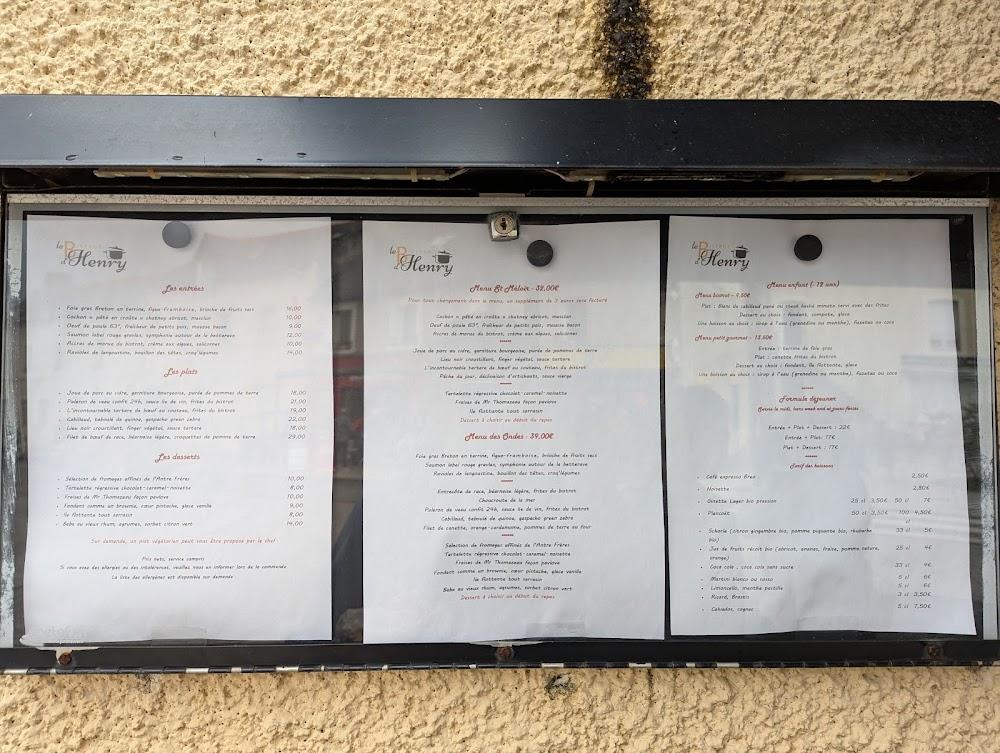 le Bistrot
d'Henry
Les entrées
Foie gras Breton en terrine, Agua-framboise, brioche de fruits secs 16,00
Cochon « pâté en croûte » chutney abricot, mesclun 10,00
Oeuf de poule 63°, fraîcheur de petits pois, mousse bacon 9,00
Saumon label rouge gravlax, symphonie autour de la betterave 12,00
Accras de morue du bistrot, crème aux algues, salicornes 10,00
Ravioles de langoustine, bouillon des têtes, croq'légumes 14,00
Les plats
Joue de porc au cidre, garniture bourgeoise, purée de pommes de terre 18,00
Paleron de veau confit 24h, sauce lie de vin, frites du bistrot 21,00
L'incontournable tartare de bœuf au couteau, frites du bistrot 19,00
Cabillaud, taboulé de quinoa, gaspacho green zebra 22,00
Lieu noir croustillant, finger végétal, sauce tartare 18,00
Filet de bœuf de race, béarnaise légère, croquettes de pomme de terre 29,00
Les desserts
Sélection de fromages affinés de l'Antre Frères 10,00
Tartelette régressive chocolat-caramel-noisette 8,00
Fraises de Mr Thomazeau façon pavlova 10,00
Fondant comme un brownie, cœur pistache, glace vanille 9,00
Ile flottante tout sarrasin 8,00
Baba au vieux rhum, agrumes, sorbet citron vert 14,00
Sur demande, un plat végétarien peut vous être proposé par le chef
Prix nets, service compris
Si vous avez des allergies ou des intolérances, veuillez nous en informer lors de la commande
La liste des allergènes est disponible sur demande
le Bistrot
d'Henry
Menu St Méloir - 32,00€
Pour tous changement dans le menu, un supplément de 3 euros sera facturé
Cochon « pâté en croûte » chutney abricot, mesclun
Oeuf de poule 63°, fraîcheur de petits pois, mousse bacon
Accras de morue du bistrot, crème aux algues, salicornes
******
Joue de porc au cidre, garniture bourgeoise, purée de pommes de terre
Lieu noir croustillant, finger végétal, sauce tartare
L'incontournable tartare de bœuf au couteau, frites du bistrot
Pêche du jour, déclinaison d'artichauts, sauce vierge
******
Tartelette régressive chocolat-caramel-noisette
Fraises de Mr Thomazeau façon pavlova
Ile flottante tout sarrasin
Dessert à choisir au début du repas
Menu des Ondes - 39,00€
Foie gras Breton en terrine, Agua-framboise, brioche de fruits secs
Saumon label rouge gravlax, symphonie autour de la betterave
Ravioles de langoustine, bouillon des têtes, croq'légumes
******
Entrecôte de race, béarnaise légère, frites du bistrot
Choucroute de la mer
Paleron de veau confit 24h, sauce lie de vin, frites du bistrot
Cabillaud, taboulé de quinoa, gaspacho green zebra
Filet de canette, orange-cardamome, pommes de terre au four
******
Sélection de fromages affinés de l'Antre Frères
Tartelette régressive chocolat-caramel-noisette
Fraises de Mr Thomazeau façon pavlova
Fondant comme un brownie, cœur pistache, glace vanille
Ile flottante tout sarrasin
Baba au vieux rhum, agrumes, sorbet citron vert
Dessert à choisir au début du repas
le Bistrot
d'Henry
Menu enfant (- 12 ans)
Menu bistrot - 9,50€
Plat : Blanc de cabillaud pané ou steak haché minute servi avec des frites
Dessert au choix : fondant, compote, glace
Une boisson au choix : sirop à l'eau (grenadine ou menthe), fuzetea ou coca
Menu petit gourmet - 13,50€
Entrée : terrine de foie gras
Plat : canette frites du bistrot
Dessert au choix : fondant, île flottante, glace
Une boisson au choix : sirop à l'eau (grenadine ou menthe), fuzetea ou coca
******
Formule déjeuner
Servie le midi, hors week end et jours fériés
Entrée + Plat + Dessert : 22€
Entrée + Plat: 17€
Plat + Dessert : 17€
******
Tarif des boissons
Café expresso Brea 2,50€
Noisette 2,80€
Ginette Lager bio pression 25 cl 3,50€ 50 cl 7€
Plancoët 50 cl 3,50€ 100 cl 4,50€
Schorle (citron gingembre bio, pomme piquante bio, rhubarbe bio) 33 cl 5€
Jus de fruits récolt bio (abricot, ananas, fraise, pomme nature, orange) 25 cl 4€
Coca cola , coca cola sans sucre 33 cl 4€
Martini bianco ou rosso 5 cl 6€
Limoncello, menthe pastille 5 cl 6€
Ricard, Brastis 3 cl 3,50€
Calvados, cognac 5 cl 7,50€